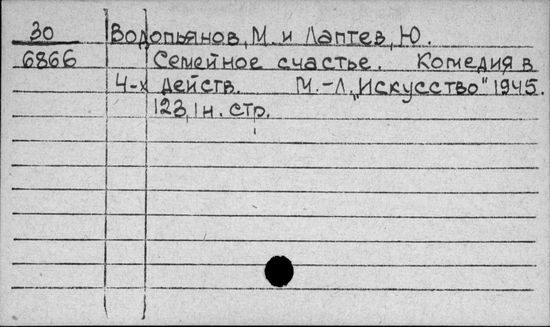 30 Водопьянов, М. и Лаптев, Ю.
6866 Семейное счастье. Комедия в
4-х действ. М.-Л. „Искусство" 1945.
123, 1 н. стр.